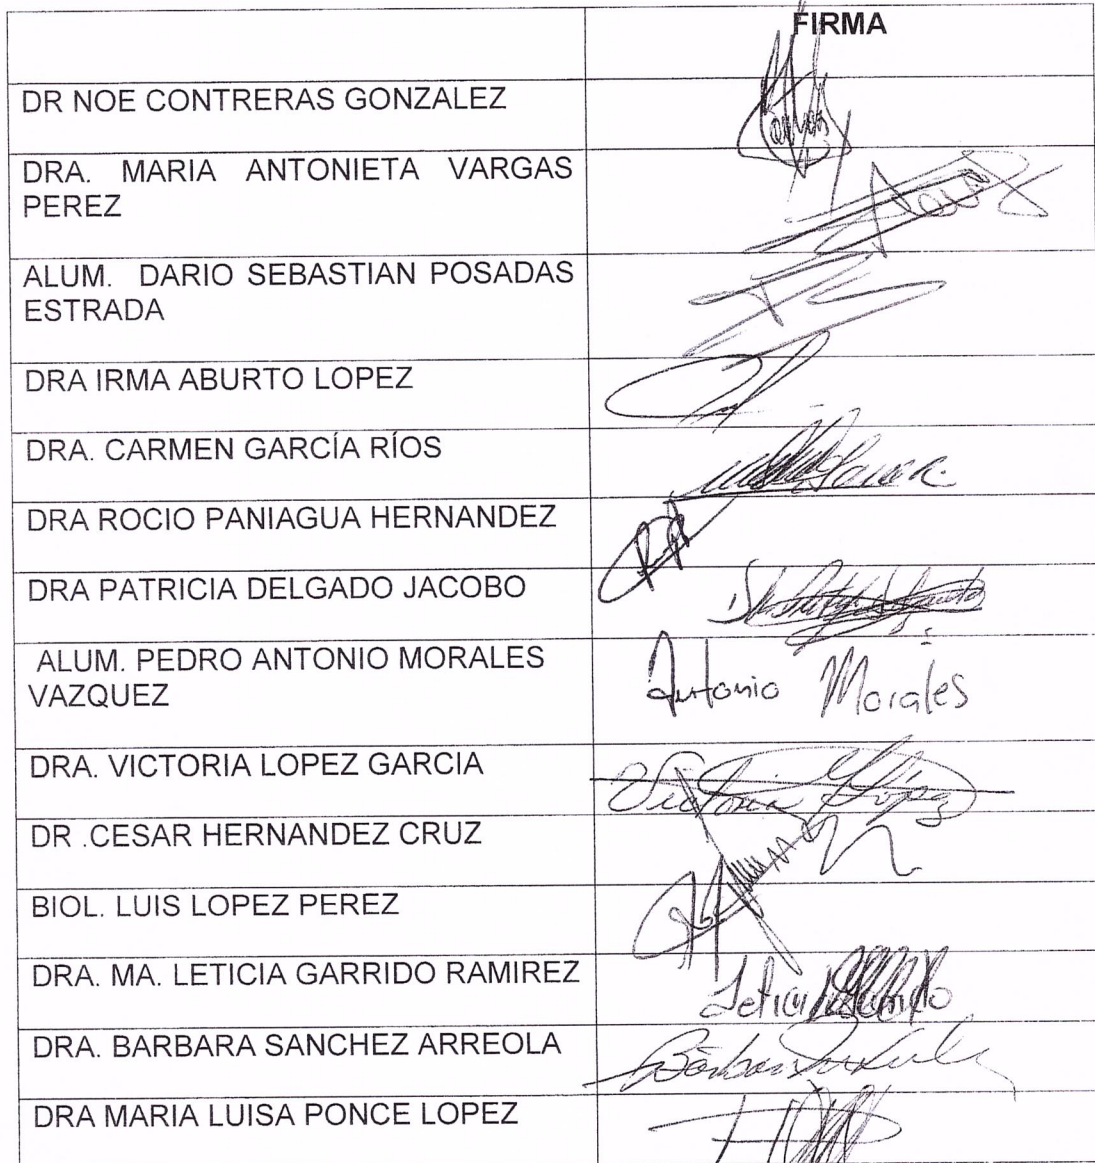 FIRMA
DR NOE CONTRERAS GONZALEZ
DRA. MARIA ANTONIETA VARGAS
PEREZ
ALUM. DARIO SEBASTIAN POSADAS
ESTRADA
DRA IRMA ABURTO LOPEZ
DRA. CARMEN GARCÍA RÍOS
DRA ROCIO PANIAGUA HERNANDEZ
DRA PATRICIA DELGADO JACOBO
ALUM. PEDRO ANTONIO MORALES
VAZQUEZ
Antonio Morales
DRA. VICTORIA LOPEZ GARCIA
Victoria López
DR .CESAR HERNANDEZ CRUZ
BIOL. LUIS LOPEZ PEREZ
DRA. MA. LETICIA GARRIDO RAMIREZ
Leticia Garrido
DRA. BARBARA SANCHEZ ARREOLA
Bárbara
DRA MARIA LUISA PONCE LOPEZ